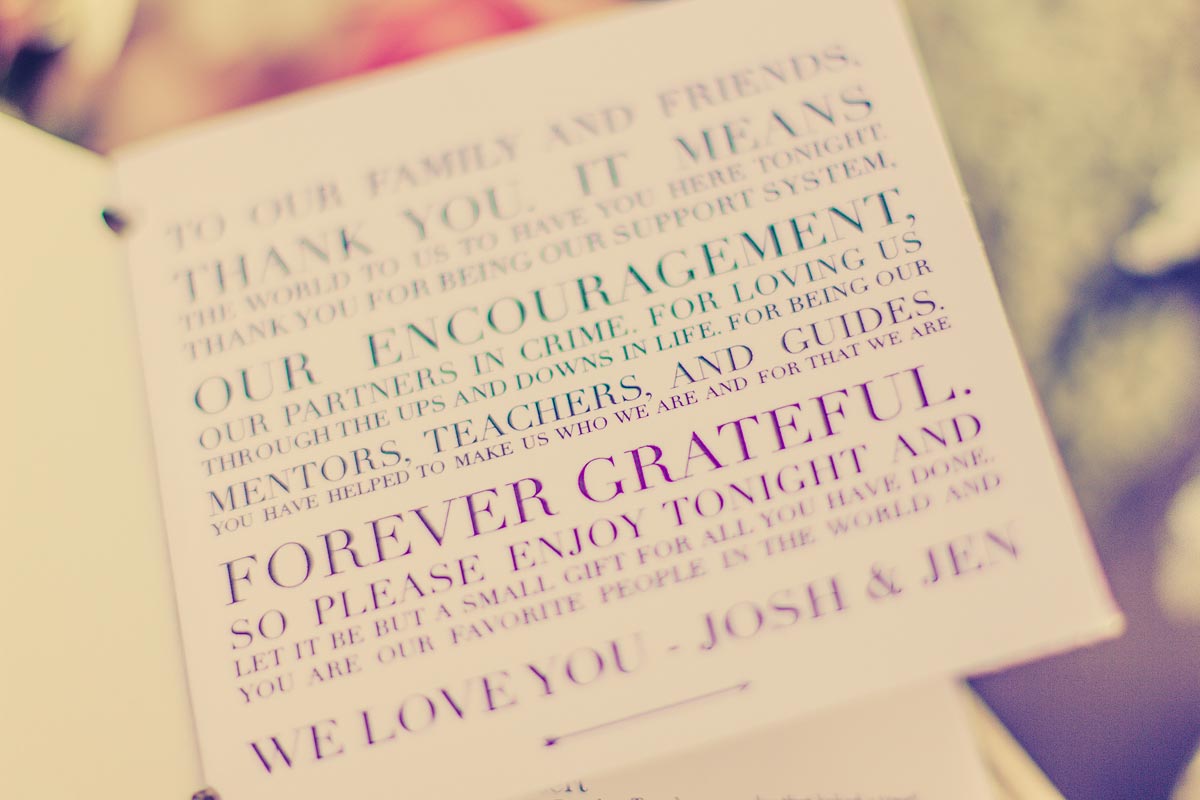 TO OUR FAMILY AND FRIENDS,
THANK YOU. IT MEANS
THE WORLD TO US TO HAVE YOU HERE TONIGHT.
THANK YOU FOR BEING OUR SUPPORT SYSTEM,
OUR ENCOURAGEMENT,
OUR PARTNERS IN CRIME. FOR LOVING US
THROUGH THE UPS AND DOWNS IN LIFE. FOR BEING OUR
MENTORS, TEACHERS, AND GUIDES.
YOU HAVE HELPED TO MAKE US WHO WE ARE AND FOR THAT WE ARE
FOREVER GRATEFUL.
SO PLEASE ENJOY TONIGHT AND
LET IT BE BUT A SMALL GIFT FOR ALL YOU HAVE DONE.
YOU ARE OUR FAVORITE PEOPLE IN THE WORLD AND
WE LOVE YOU - JOSH & JEN